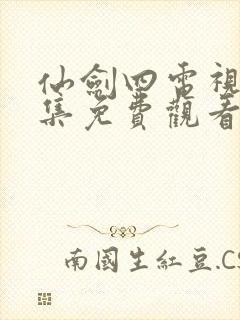 仙劍四電視
集免費觀看
南國生紅豆.CS